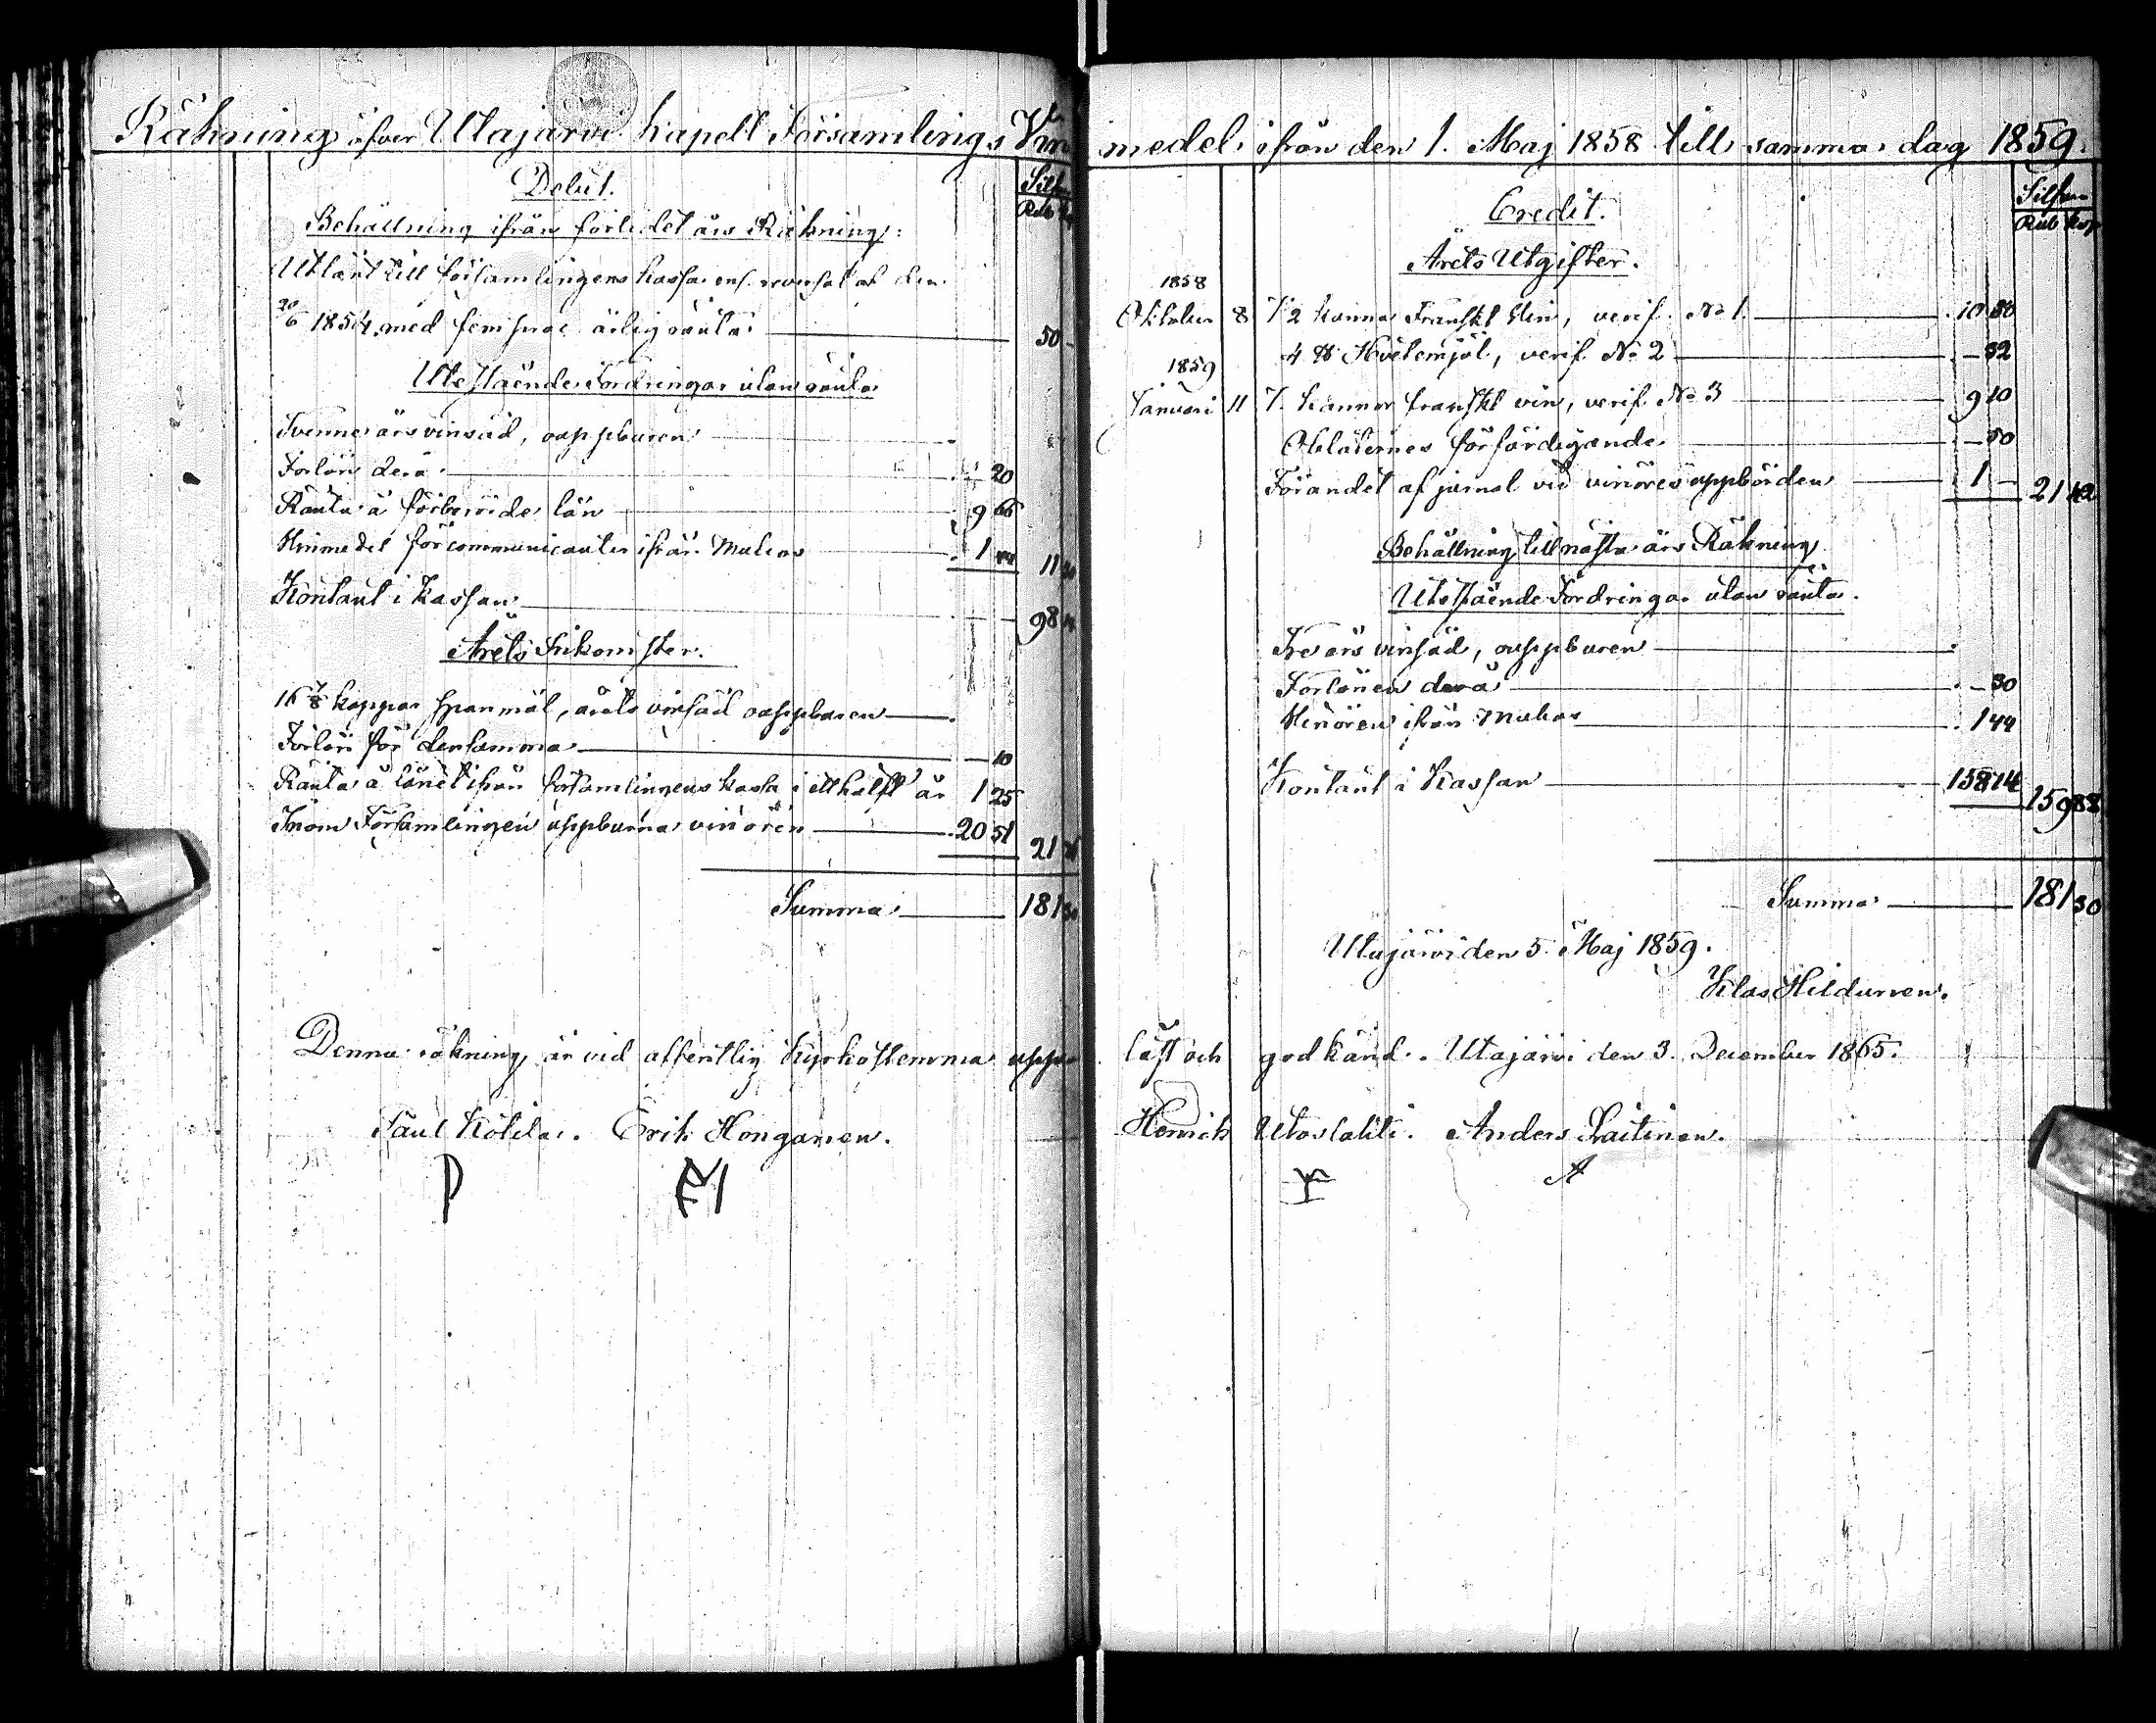 Räkning öfver Utajärvi Kapell Församlings Vin
Debet.
Silfver
Rub kop
Behållning ifrån förledet års Räkning:
Utlånt till församlingens kassa enl. reversal af den
20/6 1854, med fem proc. årlig ränta 50 -
Utestående Fordringar utan ränta
Tvenne års vinsäd, ouppburen
Forlön derå - 20
Ränta å förberörde lån 9 66
Vinmedel för communicanter ifrån Muhos 1 44 11 30
Kontant i kassan 98 14
Årets Inkomster.
16 7/8 kappar spanmål, årets vinsäd ouppburen
Forlön för densamma - 10
Ränta å lånet ifrån församlingens kassa i ett halft år 1 25
Inom Församlingen uppburna vinören 20 51 21 86
Summa 181 30
Denna räkning är vid offentlig Kyrkostemma upp
Paul Kötila. Erik Honganen.
P
medel ifrån den 1. Maj 1858 till samma dag 1859.
Credit.
Silfver
Rub kop
Årets Utgifter.
1858
Oktober 8 7½ kannor Franskt Vin, verif. No 1. 10 50
4 ℔ Hvetemjöl, verif. No 2 - 32
1859
Januari 11 7. kannor franskt vin, verif. No 3 9 10
Oblaternes förfärdigande - 50
Förandet af jurnal vid vinöres uppbörden 1 - 21 42
Behållning till nästa års Räkning
Utestående Fordringar utan ränta.
Tre års vinsäd, ouppburen
Forlönen derå - 30
Vinören ifrån Muhos 1 44
Kontant i Kassan 158 14 159 88
Summa 181 30
Utajärvi den 5. Maj 1859.
Klas Hildunen.
läst och godkänd. Utajärvi den 3. December 1865.
Henrich Utoslahti. Anders Laitinen.
A